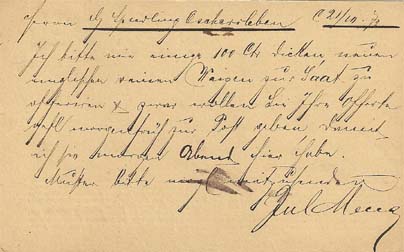 Herrn G Oschersleben
Ich bitte mir einige 100 Ctr dicken neuen
englischen reinen Weizen zur Saat zu
offeriren & zwar wollen Sie Ihre Offerte
morgenfrüh zur Post geben damit
ich sie morgen Abend hier habe.
Muster bitte mitzusenden
Jul